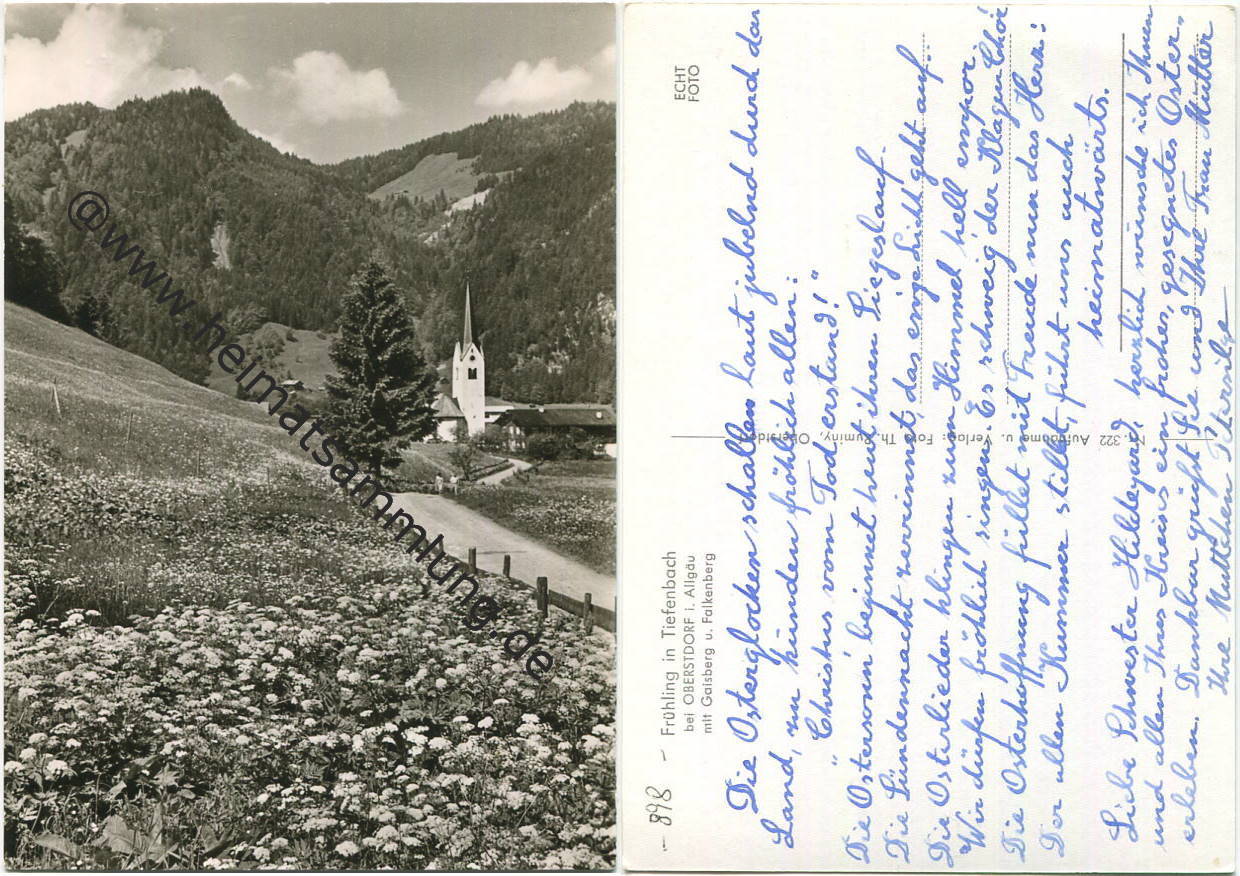 @www.heimatsammlung.de
898
Frühling in Tiefenbach
bei OBERSTDORF i. Allgäu
mit Gaisberg u. Falkenberg
ECHT
FOTO
Die Osterglocken schallen laut jubelnd durch das
Land, um künden fröhlich allen:
"Christus vom Tod erstund!"
Die Ostersonn' beginnet heut ihren Siegeslauf.
Die Sündennacht zerrinnet, das ewge Licht geht auf.
Die Osterlieder klingen zum Himmel hell empor,
Wir dürfen fröhlich singen. Es schweig der Klagen Chor
Die Osterhoffnung füllet mit Freude nun das Herz:
Der allen Kummer stillet, führt uns auch
heimatwärts.
Liebe Schwester Hildegard, herzlich wünsche ich Ihnen
und allen Ihres Kreises ein frohes, gesegnetes Oster-
erleben. Dankbar grüßt Sie und Ihre Frau Mutter
Ihre Petersilge
322 Aufnahme u. Verlag: Foto Th. Ruminy, Oberstdorf